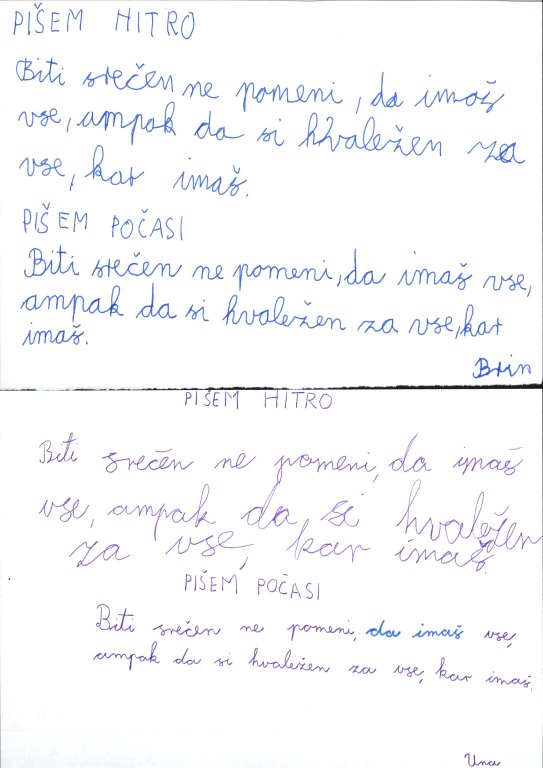 PIŠEM HITRO
Biti srečen ne pomeni, da imaš
vse, ampak da si hvaležen za
vse, kar imaš.
PIŠEM POČASI
Biti srečen ne pomeni, da imaš vse,
ampak da si hvaležen za vse, kar
imaš.
Brin
PIŠEM HITRO
Biti srečen ne pomeni, da imaš
vse, ampak da si hvaležen
za vse, kar imaš.
PIŠEM POČASI
Biti srečen ne pomeni, da imaš vse,
ampak da si hvaležen za vse, kar imaš.
Una